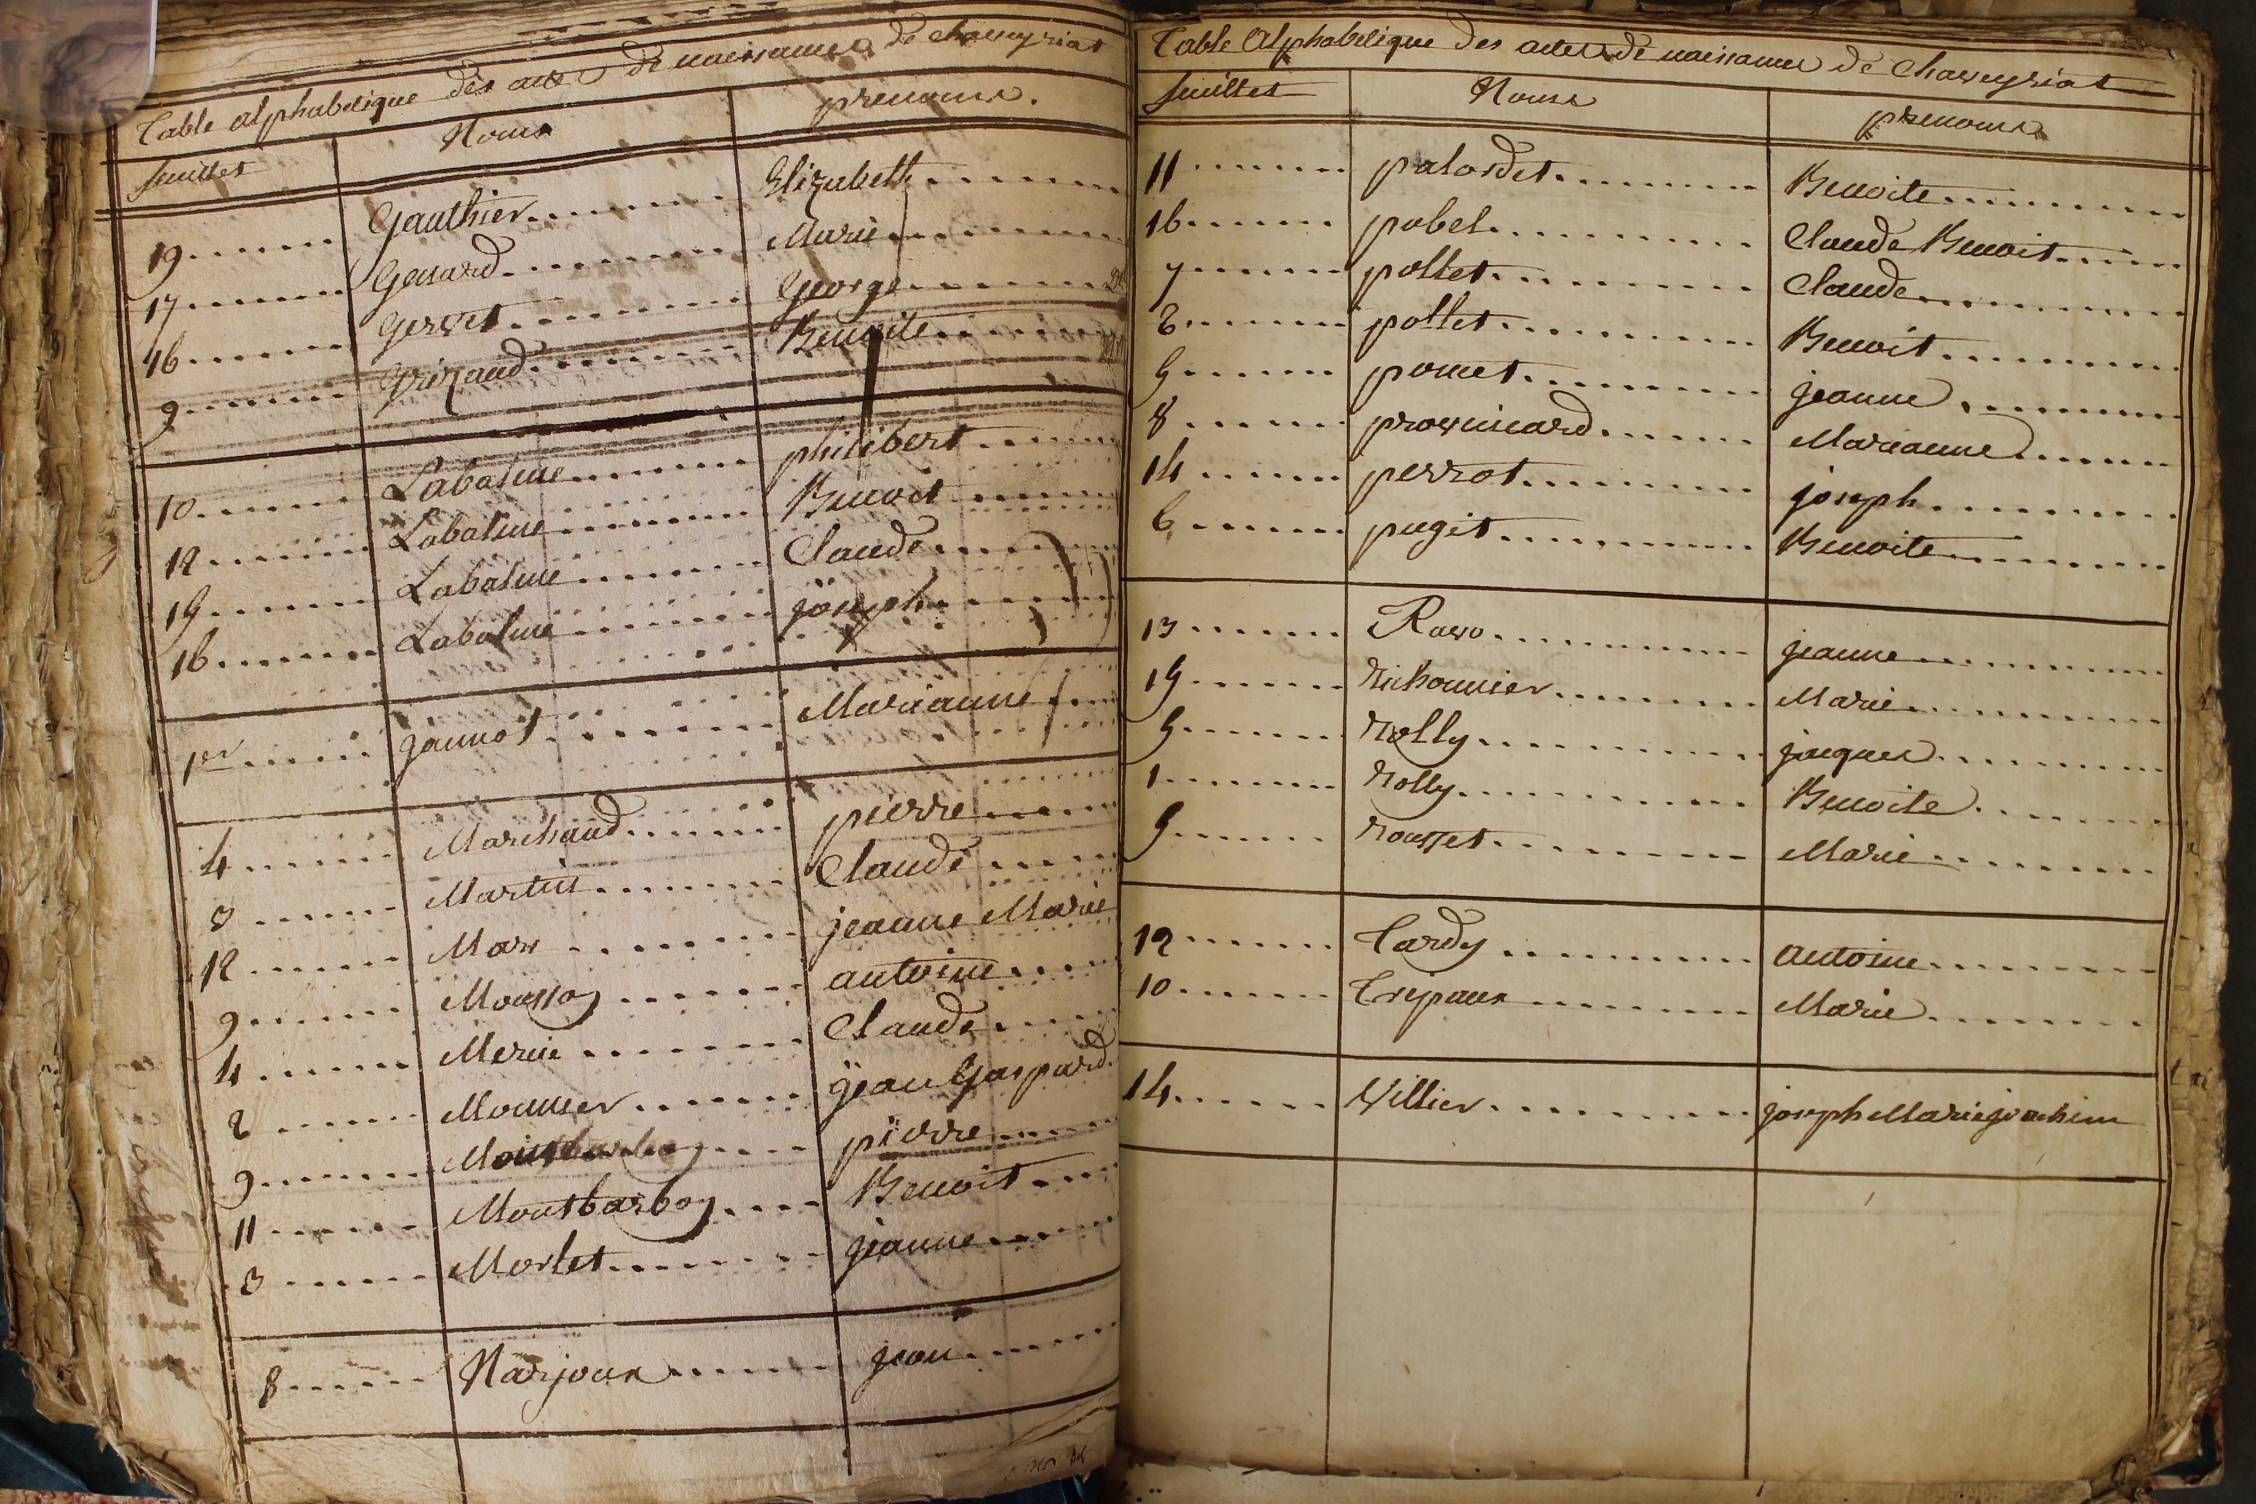 Table alphabetique des actes de naissances de chaveyriat
feuilles Noms prenoms.
19 Gauthier Elizabeth
17 Genard Marie
16 Gervet George
9 Grizaud Benoite
10 Labalme philibert
12 Labalme Benoit
19 Labalme Claude
16 Labalme joseph
1er jannot Marianne
4 Marchand pierre
3 Martin Claude
12 Mare jeanne Marie
9 Moussoy antoine
4 Merine Claude
2 Monnier jean Gaspard
9 Montbarboy pierre
11 Montbarboy Benoit
3 Morlet jeanne
8 Narjoux jean
Table Alphabetique des actes de naissances de Chaveyriat
feuilles Noms prenoms
11 palordet Benoite
16 pobel Claude Benoit
7 pollet Claude
2 pollet Benoit
9 pomet jeanne
8 provincard Marianne
14 perrot joseph
6 puget Benoite
13 Ravo jeanne
19 richonnier Marie
9 rolly jacques
1 rolly Benoite
9 rousset Marie
12 Tardy antoine
10 Trepaux Marie
14 Villier joseph Marie joachim